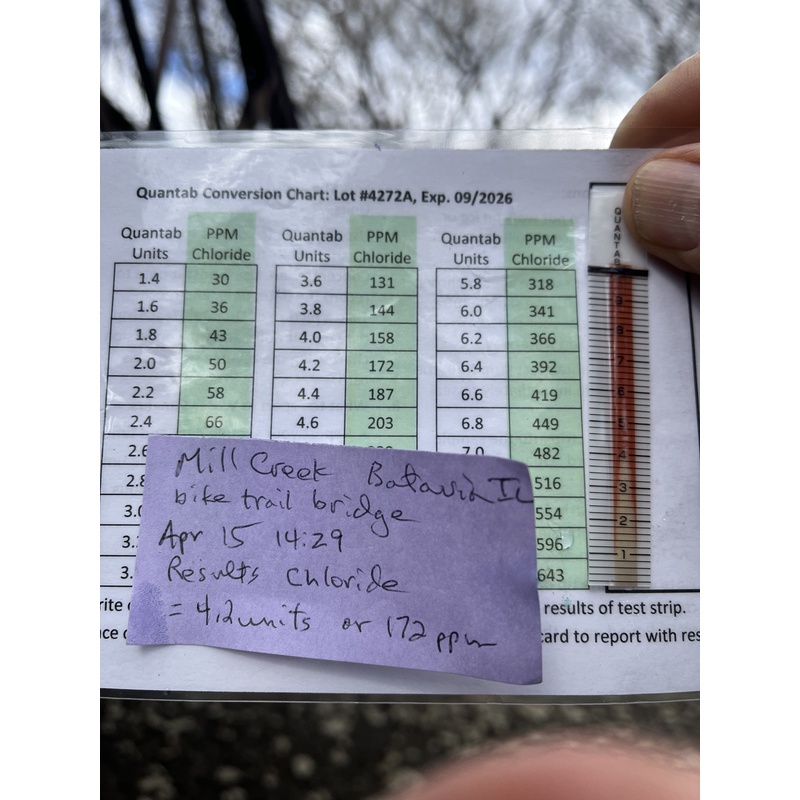 Quantab Conversion Chart: Lot #4272A, Exp. 09/2026
Quantab Units PPM Chloride Quantab Units PPM Chloride Quantab Units PPM Chloride
1.4 30 3.6 131 5.8 318
1.6 36 3.8 144 6.0 341
1.8 43 4.0 158 6.2 366
2.0 50 4.2 172 6.4 392
2.2 58 4.4 187 6.6 419
2.4 66 4.6 203 6.8 449
7.0 482
516
554
596
643
Mill Creek Batavia IL
bike trail bridge
Apr 15 14:29
Results Chloride
= 4.2 units or 172 ppm
results of test strip.
card to report with res
QUANTAB
9
8
7
6
5
4
3
2
1